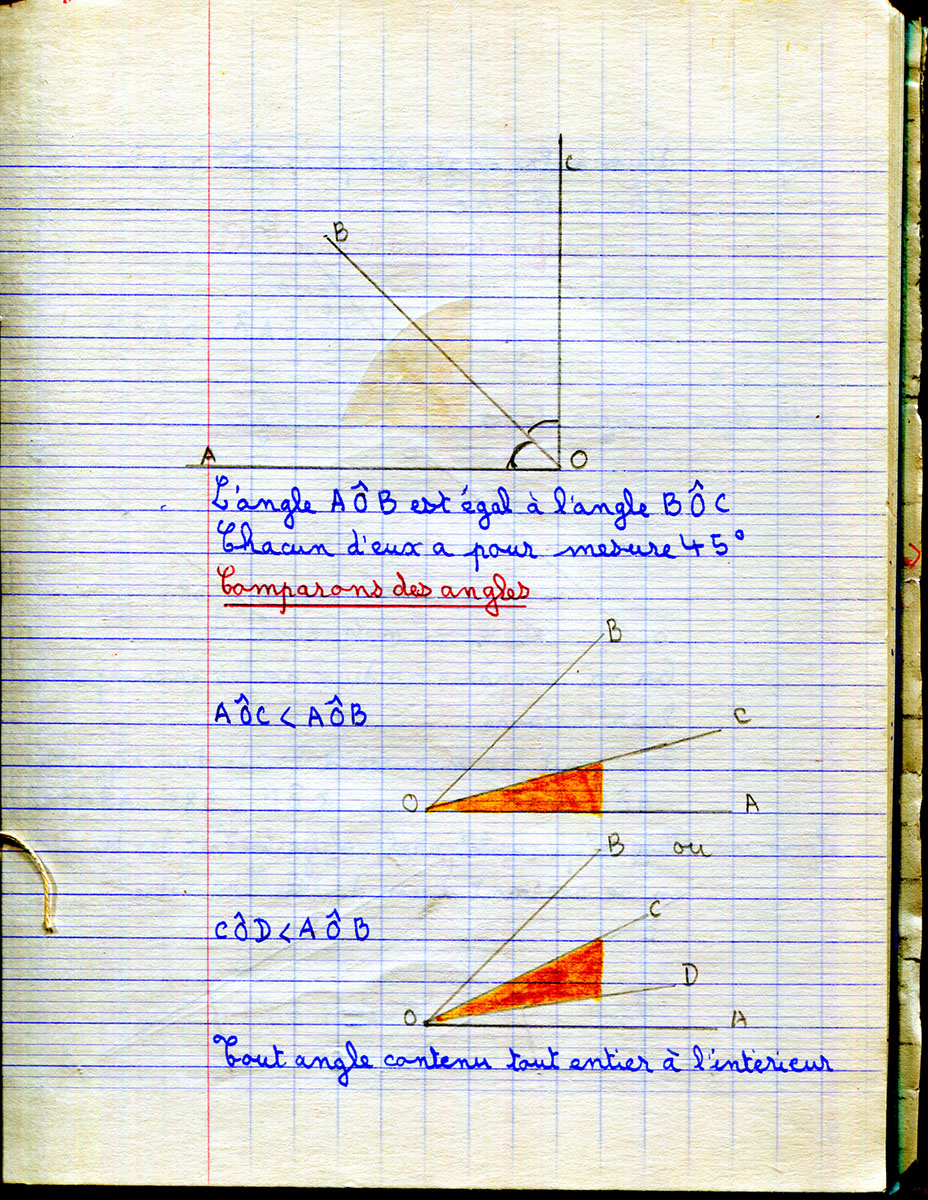 C
B
A
O
L'angle AÔB est égal à l'angle BÔC
Chacun d'eux a pour mesure 45°
Comparons des angles
B
AÔC < AÔB
C
O
A
B ou
C
CÔD < AÔB
D
O
A
Tout angle contenu tout entier à l'intérieur